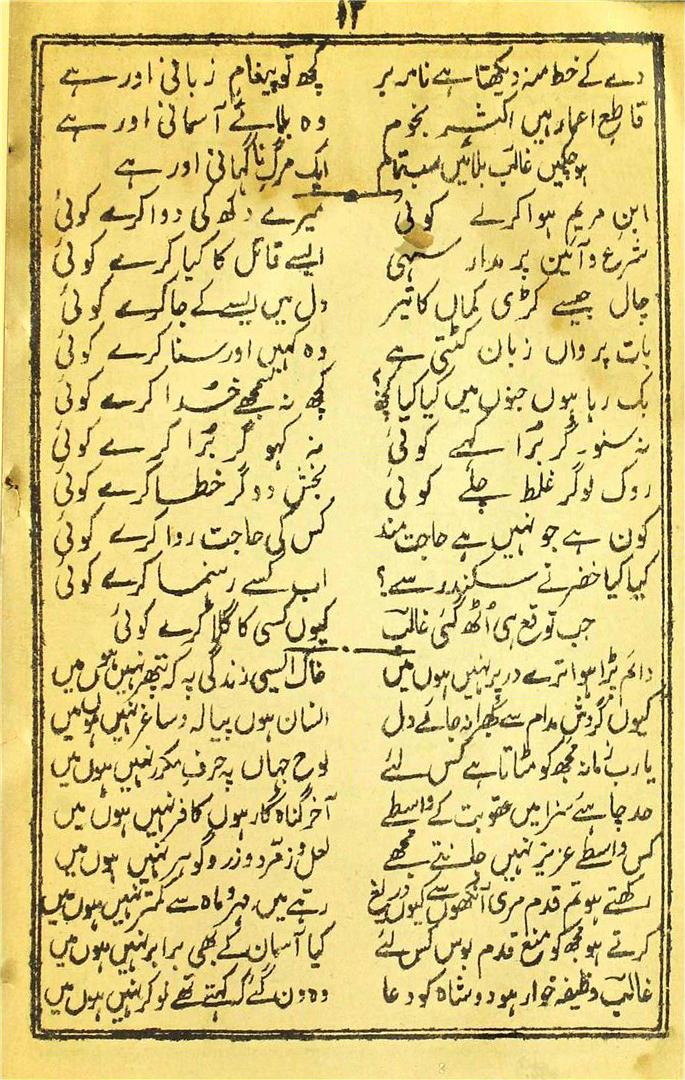 ۱۳
دے کے خط منہ دیکھتا ہے نامہ بر کچھ تو پیغام زبانی اور ہے
قاطع اعمار ہیں اکثر نجوم وہ بلائے آسمانی اور ہے
ہو چکیں غالب بلائیں سب تمام ایک مرگ ناگہانی اور ہے
ابن مریم ہوا کرے کوئی میرے دکھ کی دوا کرے کوئی
شرع و آئین پر مدار سہی ایسے قاتل کا کیا کرے کوئی
چال جیسے کڑی کماں کا تیر دل میں ایسے کے جا کرے کوئی
بات پر واں زبان کٹتی ہے وہ کہیں اور سنا کرے کوئی
بک رہا ہوں جنوں میں کیا کیا کچھ کچھ نہ سمجھے خدا کرے کوئی
نہ سنو۔ گر برا کہے کوئی نہ کہو گر برا کرے کوئی
روک لو گر غلط چلے کوئی بخش دو گر خطا کرے کوئی
کون ہے جو نہیں ہے حاجت مند کس کی حاجت روا کرے کوئی
کیا کیا خضر نے سکندر سے؟ اب کسے رہنما کرے کوئی
جب توقع ہی اُٹھ گئی غالب کیوں کسی کا گلا کرے کوئی
دائم پڑا ہوا ترے در پر نہیں ہوں میں خاک ایسی زندگی پہ کہ پتھر نہیں ہوں میں
کیوں گردش مدام سے گھبرا نہ جائے دل انسان ہوں پیالہ و ساغر نہیں ہوں میں
یارب زمانہ مجھ کو مٹاتا ہے کس لئے لوح جہاں پہ حرف مکرر نہیں ہوں میں
حد چاہئے سزا میں عقوبت کے واسطے آخر گناہ گار ہوں کافر نہیں ہوں میں
کس واسطے عزیز نہیں جانتے مجھے لعل و زمرد و زر و گوہر نہیں ہوں میں
رکھتے ہو تم قدم مری آنکھوں سے کیوں دریغ رتبے میں مہر و ماہ سے کمتر نہیں ہوں میں
کرتے ہو مجھ کو منع قدم بوس کس لئے کیا آسمان کے بھی برابر نہیں ہوں میں
غالب وظیفہ خوار ہو دو شاہ کو دعا وہ دن گئے کہ کہتے تھے نوکر نہیں ہوں میں